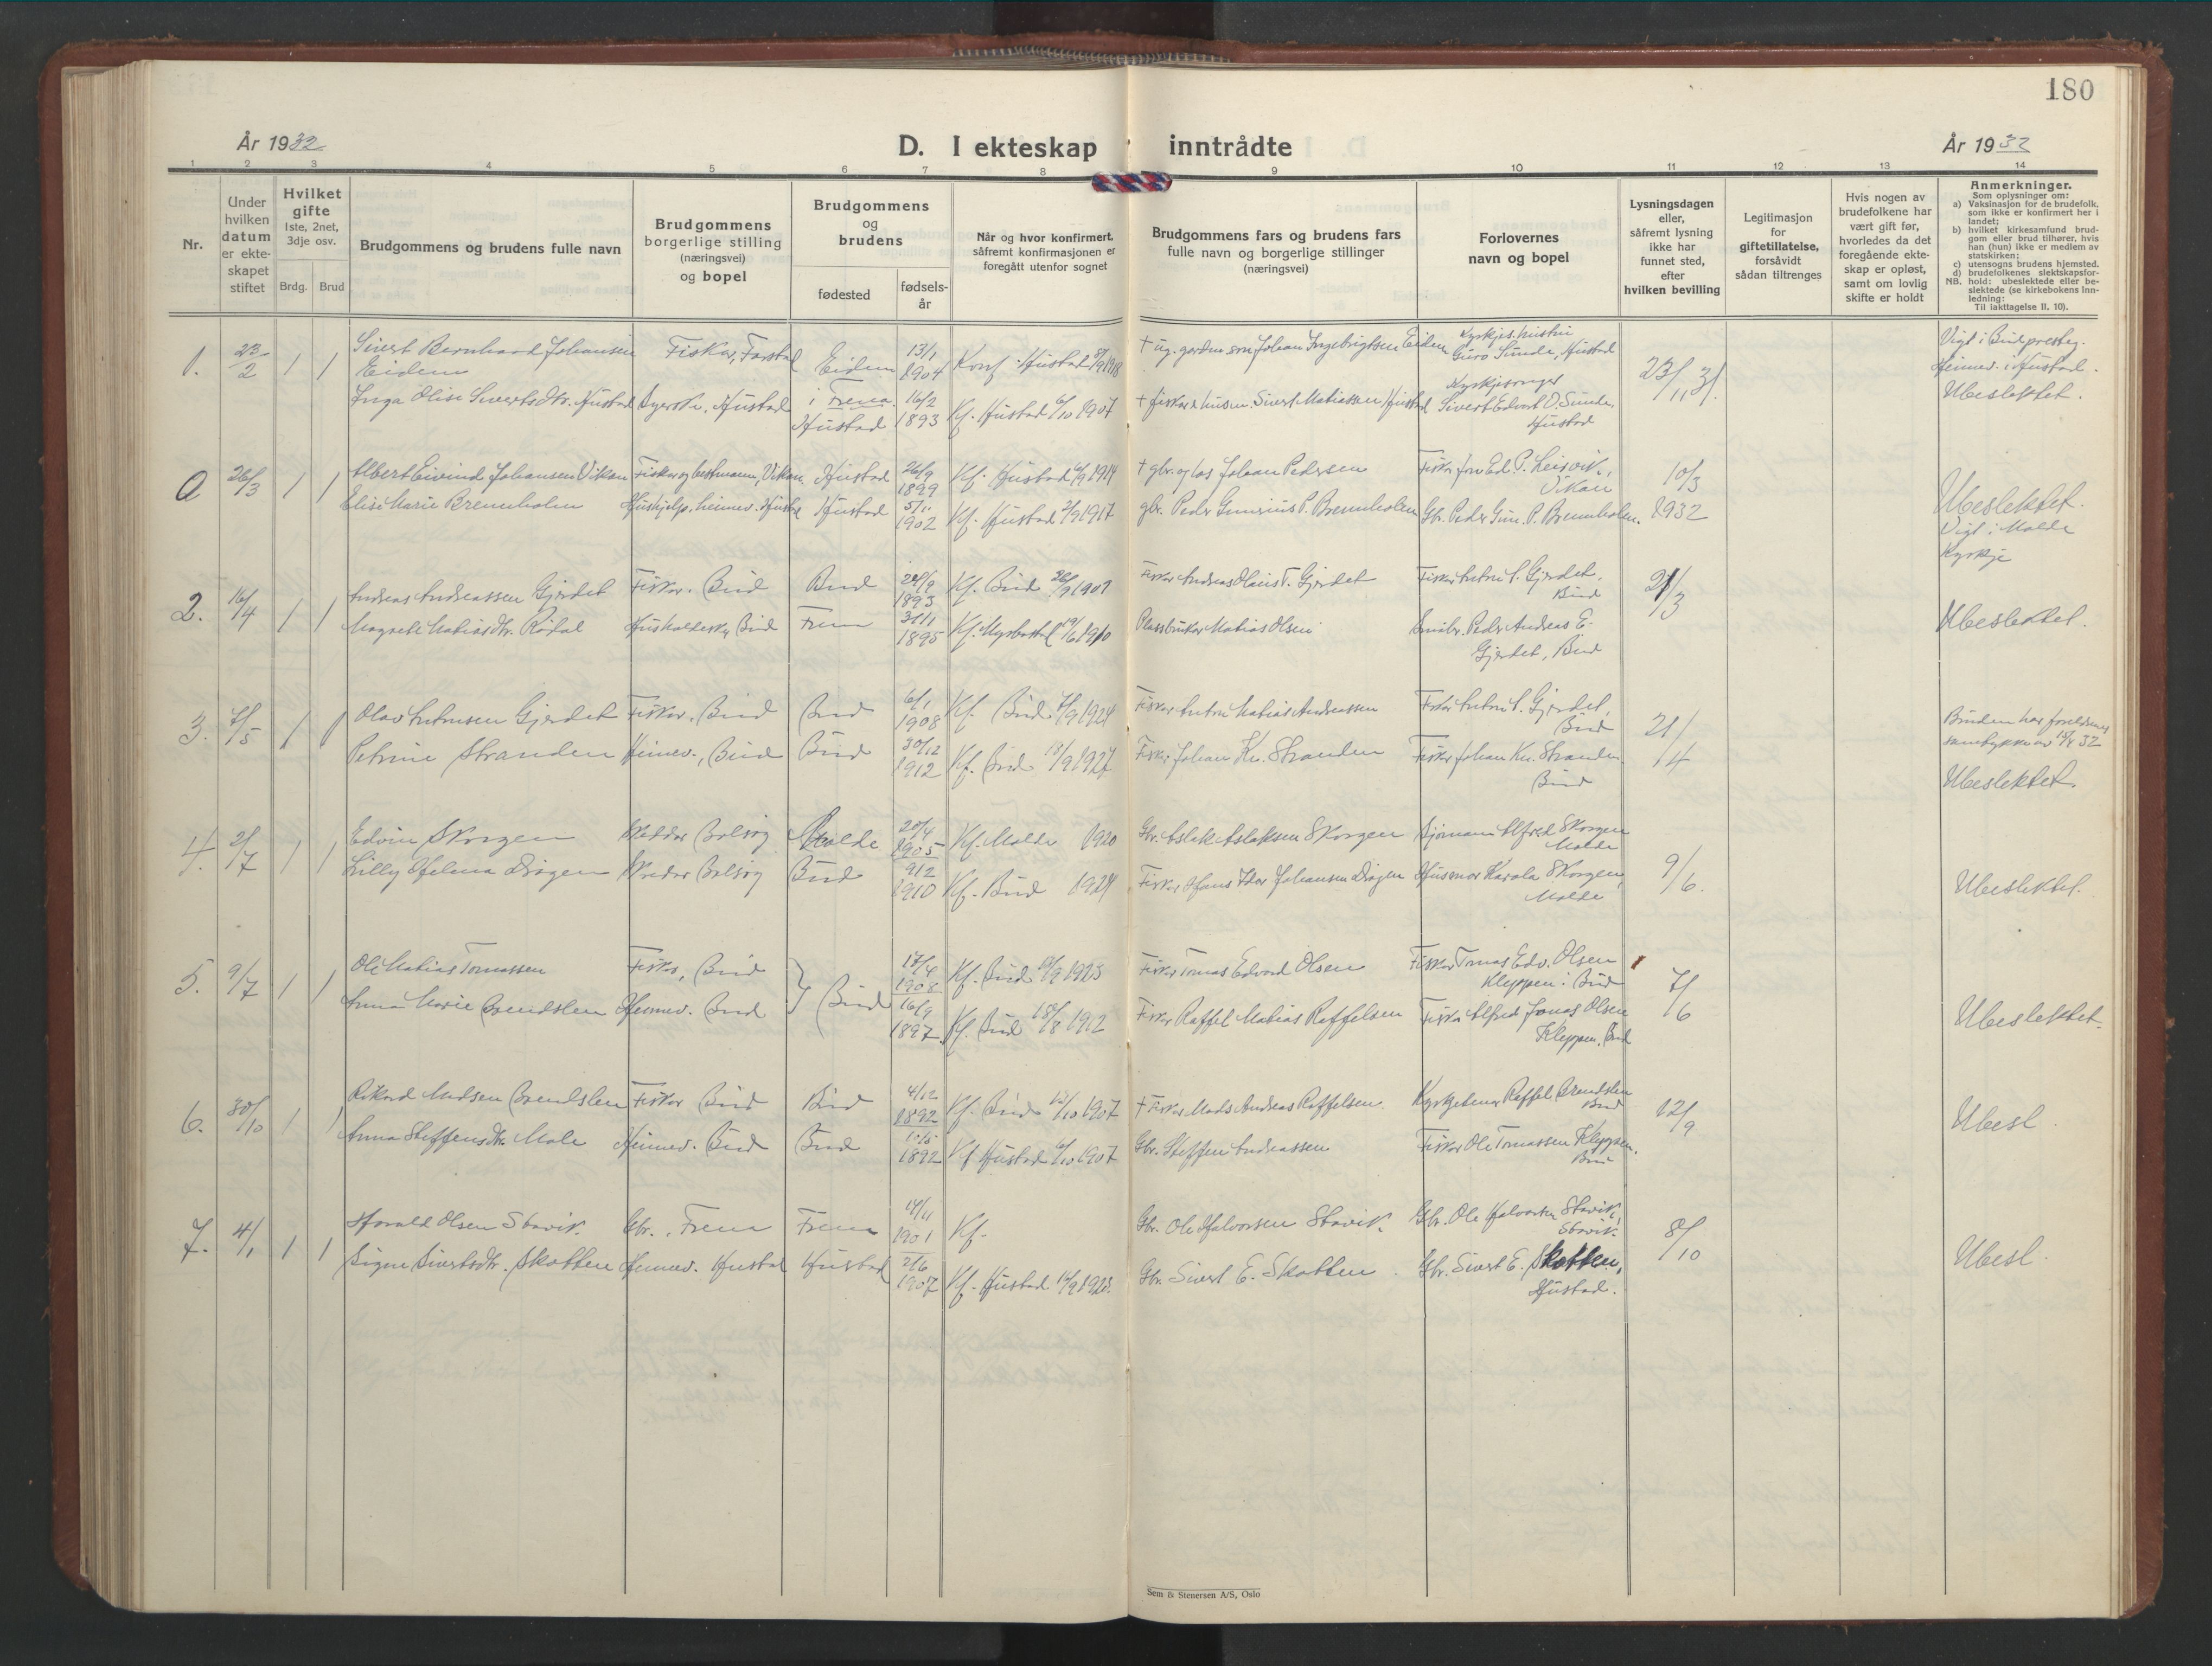 180
År 1932
D. I ekteskap inntrådte
År 1932
1 2 3 4 5 6 7 8 9 10 11 12 13 14
Nr.
Under
hvilken
datum
er ekte-
skapet
stiftet
Hvilket
gifte
1ste, 2net,
3dje osv.
Brdg. Brud
Brudgommens og brudens fulle navn
Brudgommens
borgerlige stilling
(næringsvei)
og bopel
Brudgommens
og
brudens
fødested
fødsels-
år
Når og hvor konfirmert,
såfremt konfirmasjonen er
foregått utenfor sognet
Brudgommens fars og brudens fars
fulle navn og borgerlige stillinger
(næringsvei)
Forlovernes
navn og bopel
Lysningsdagen
eller,
såfremt lysning
ikke har
funnet sted,
efter
hvilken bevilling
Legitimasjon
for
giftetillatelse,
forsåvidt
sådan tiltrenges
Hvis nogen av
brudefolkene har
vært gift før,
hvorledes da det
foregående ekte-
skap er opløst,
samt om lovlig
skifte er holdt
Anmerkninger.
Som oplysninger om:
a) Vaksinasjon for de brudefolk,
som ikke er konfirmert her i
landet;
b) hvilket kirkesamfund brud-
gom eller brud tilhører, hvis
han (hun) ikke er medlem av
statskirken;
c) utensogns brudens hjemsted.
d) brudefolkenes slektskapsfor-
NB. hold: ubeslektede eller be-
slektede (se kirkebokens Inn-
ledning:
Til iakttagelse II. 10).
1. 23/2 1 1
Sivert Bernhard Johansen
Eidem
Fisker, Farstad
Eidem
i Fræna
13/1
1904
Konf. Hustad 1918
+ ug. gardm.son Johan Ingebrigtsen Eidem
Kyrkjes. hustru
Guro Sunde, Hustad
23/11 31.
Vigt i Bud presteg.
Heimev. i Hustad.
Ubeslektet.
Inga Olise Sivertsdtr. Hustad
Syerske, Hustad
Hustad
16/2
1893
Kf. Hustad 6/10 1907
+ fisker & husm. Sivert Matiassen Hustad
Kyrkjesongar
Sivert Edvart O. Sunde,
Hustad
0 26/3 1 1
Albert Eivind Johansen Vikan
Fisker og bestmann, Vikan
Hustad
26/9
1899
Kf. Hustad 1914
+ gbr. og los Johan Pedersen
Vikan
10/3
1932
Ubeslektet.
Vigt i Molde
Kyrkje
Elise Marie Brennholm
Hushjelp, heimev. Hustad
Hustad
5/11
1902
Kf. Hustad 1917
gbr. Peder Gunerius P. Brennholm
Gbr. Peder Gun. P. Brennholm.
2. 16/4 1 1
Andreas Andreassen Gjerdet
Fisker. Bud
Bud
1893
Kf. Bud 1907
Fisker Andreas Olaus T. Gjerdet
Fisker Anton A. Gjerdet,
Bud
21/3
Ubeslektet.
Magnete Matiasdtr. Rødal
Husholderske, Bud
Fræna
31/1
1895
Kf. Myrbostad 1910
Plassbruker Matias Olsen
Småbr. Peder Andreas E.
Gjerdet, Bud
3. 7/5 1 1
Olav Antonsen Gjerdet
Fisker. Bud
Bud
6/1
1908
Kf. Bud 1924
Fisker Anton Matias Andreassen
Fisker Anton A. Gjerdet,
Bud
21/
14
Bruden har foreldrenes
samtykke av 15/4 32
Ubeslektet.
Petrine Stranden
Heimev., Bud
Bud
30/12
1912
Kf. Bud 18/9 1927
Fisker Johan Kn. Stranden
Fisker Johan Kn. Stranden
Bud
4. 2/7 1 1
Edvin Skorgen
Bolsøy
Molde
20/4
1905
Kf. Molde 1920
Gbr. Aslak Aslaksen Skorgen
Sjømann Alfred Skorgen
Molde
9/6.
Ubeslektet.
Lilly Helena Drågen
Bolsøy
Bud
9/12
1910
Kf. Bud 1924
Fisker Hans Thor Johansen Drågen
Husmor Karola Skorgen,
Molde
5. 9/7 1 1
Ole Matias Tomassen
Fisker, Bud
Bud
17/4
1908
Kf. Bud 1923
Fisker Tomas Edvard Olsen
Fisker Tomas Edv. Olsen
Kleppen i Bud
7/6
Ubeslektet.
Anna Marie Brendslen
Heimev. Bud
16/9
1897
Kf. Bud 18/8 1912
Fisker Raffel Matias Raffelsen
Fisker Alfred Jonas Olsen
Kleppen, Bud
6. 30/10 1 1
Rikard Madsen Brendslen
Fisker Bud
Bud
4/12
1892
Kf. Bud 1907
+ Fisker Mads Andreas Raffelsen.
Kyrkjetener Raffel Brendslen
Bud
12/9
Ubesl.
Anna Steffensdtr. Male
Heimev. Bud
Bud
1892
Kf Hustad 6/10 1907
Gbr. Steffen Andreassen
Fisker Ole Tomassen Kleppen.
Bud
7. 4/1 1 1
Harald Olsen Stavik.
Gbr., Fræna
Fræna
14/11
1901
Kf.
Gbr. Ole Halvorsen Stavik.
Gbr. Ole Halvorsen Stavik,
Stavik.
8/10
Ubesl.
Signe Sivertsdtr. Skotten
Heimev. Hustad
Hustad
2/6
1907
Kf. Hustad 1923.
Gbr. Sivert E. Skotten.
Gbr. Sivert E. Skotten,
Hustad.
Sem & Stenersen A/S, Oslo